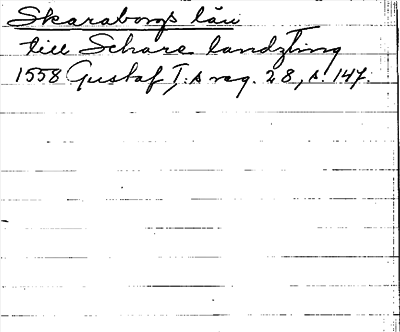 Skaraborgs län
till Schare landzting
1558 Gustaf I:s reg. 28, s. 147.